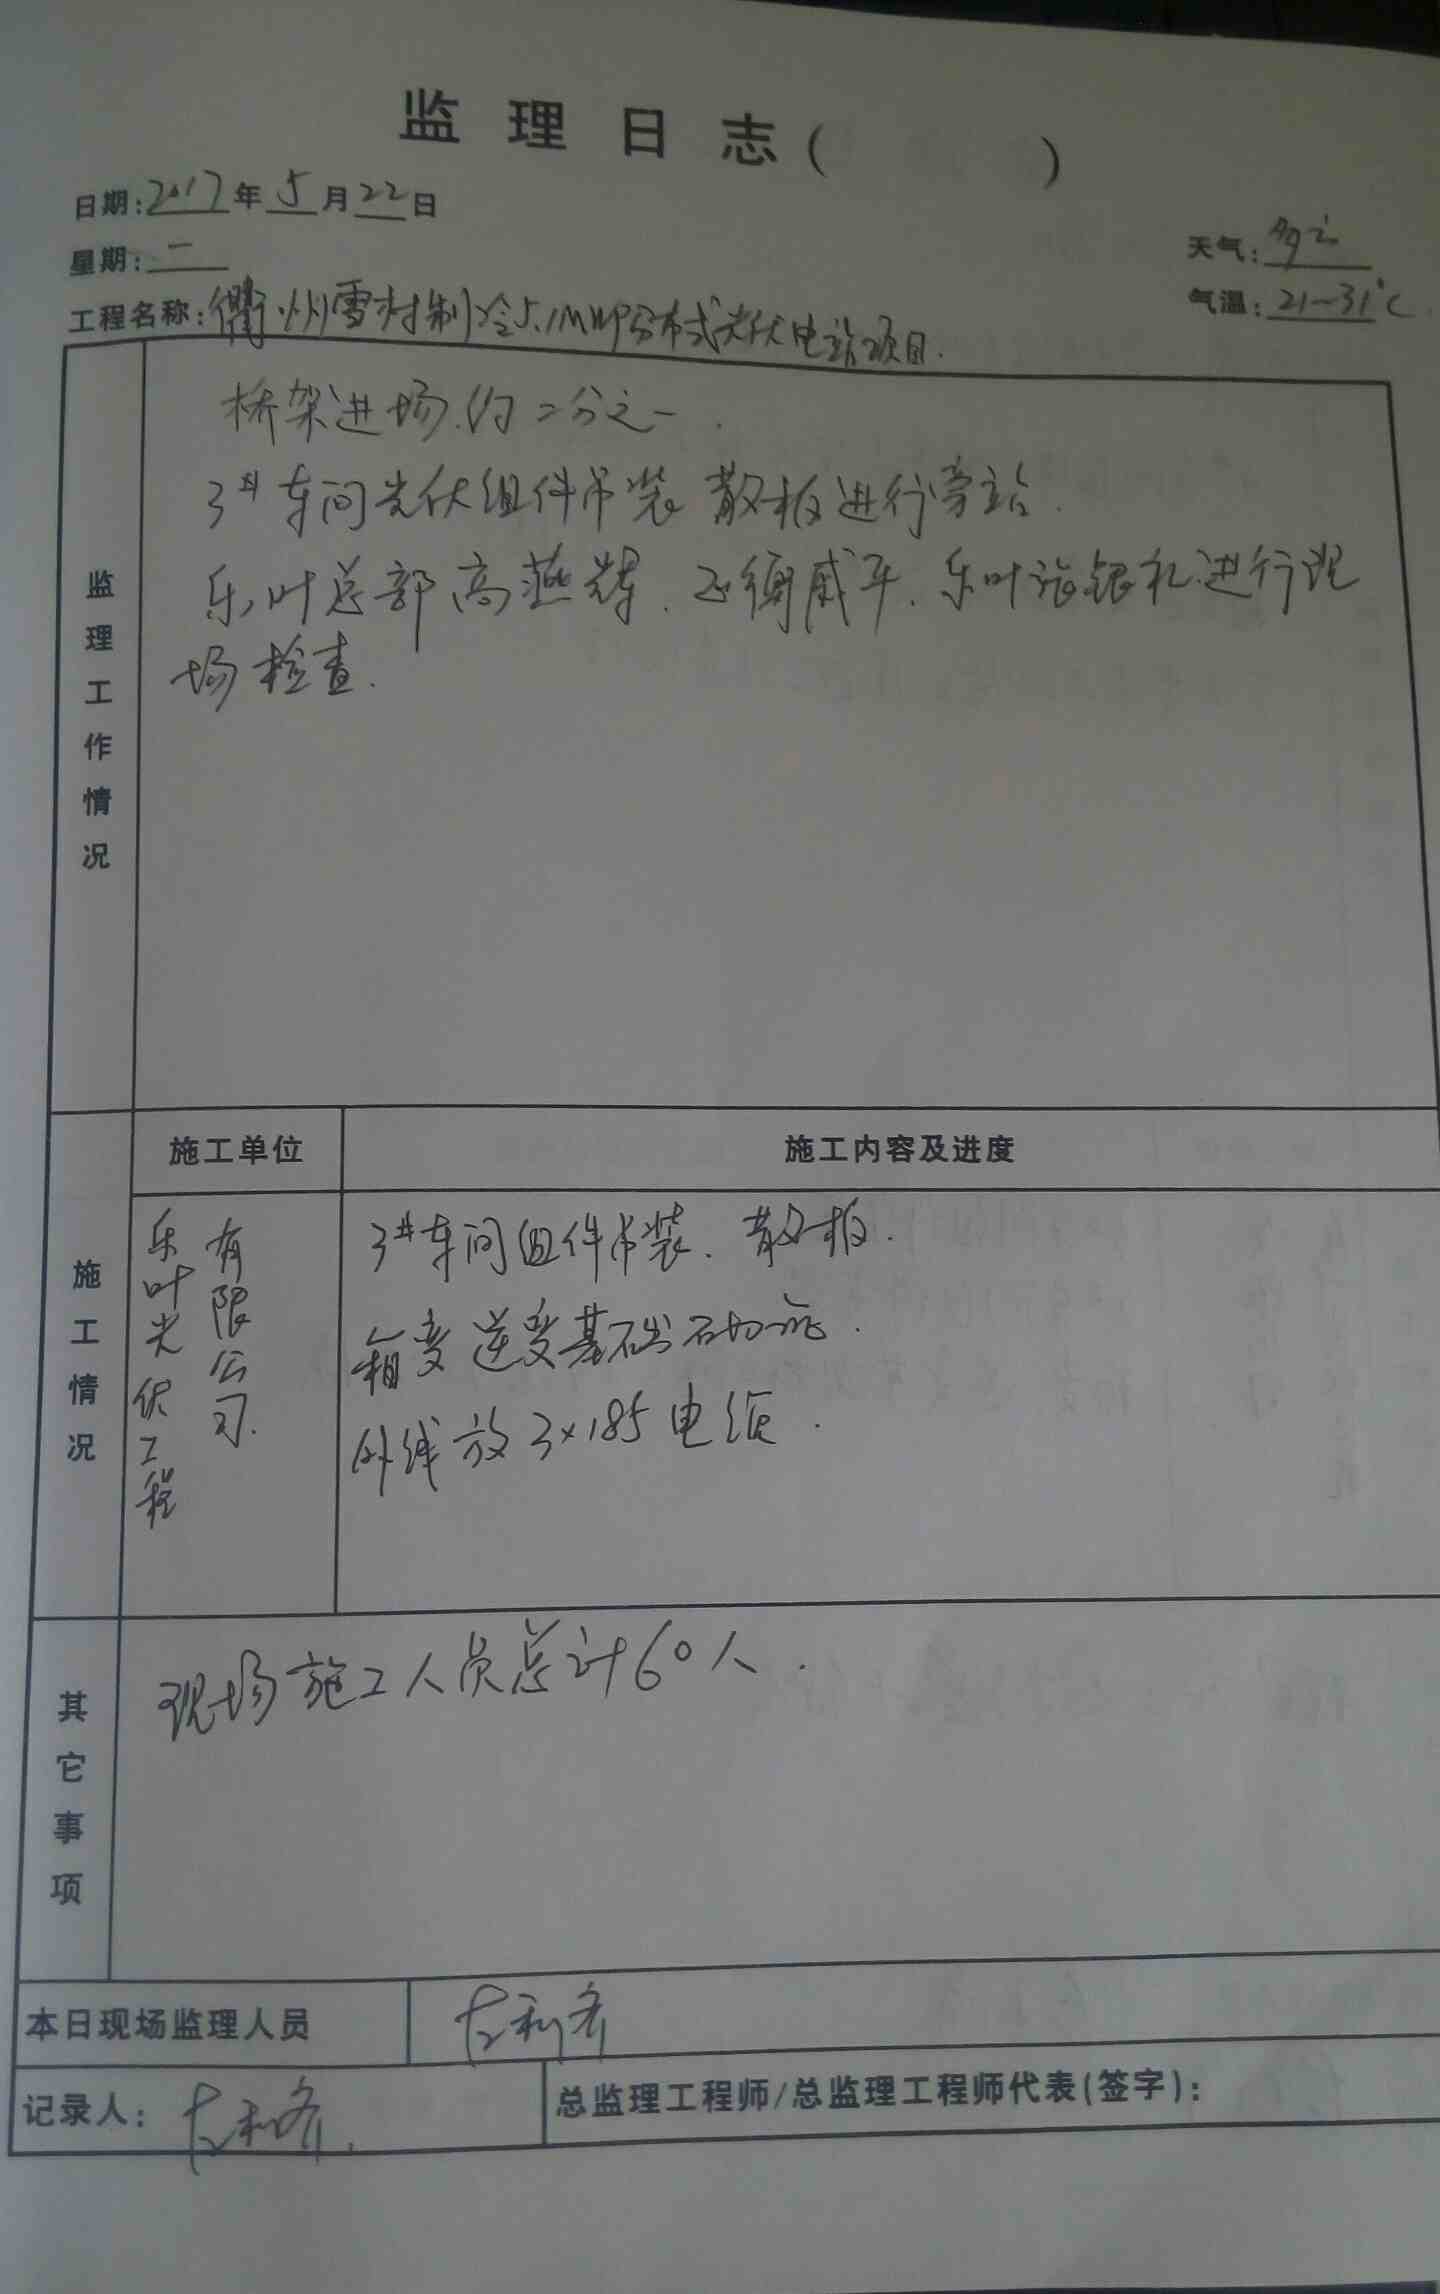 监理日志(　　)
日期:2017年5月22日
星期:二
天气:多云
气温:21~31℃
工程名称:衢州雪村制冷5.1MWP分布式光伏电站项目.
监理工作情况
桥架进场.约二分之一.
3#车间光伏组件吊装 散板进行旁站.
乐叶总部高燕辉.正衡威平.乐叶 银礼进行现
场检查.
施工情况
施工单位
施工内容及进度
乐叶光伏工程
有限公司.
3#车间组件吊装.散板.
箱变 逆变基础砌筑.
外线放3×185电缆.
其它事项
现场施工人员总计60人.
本日现场监理人员
记录人:
总监理工程师/总监理工程师代表(签字):